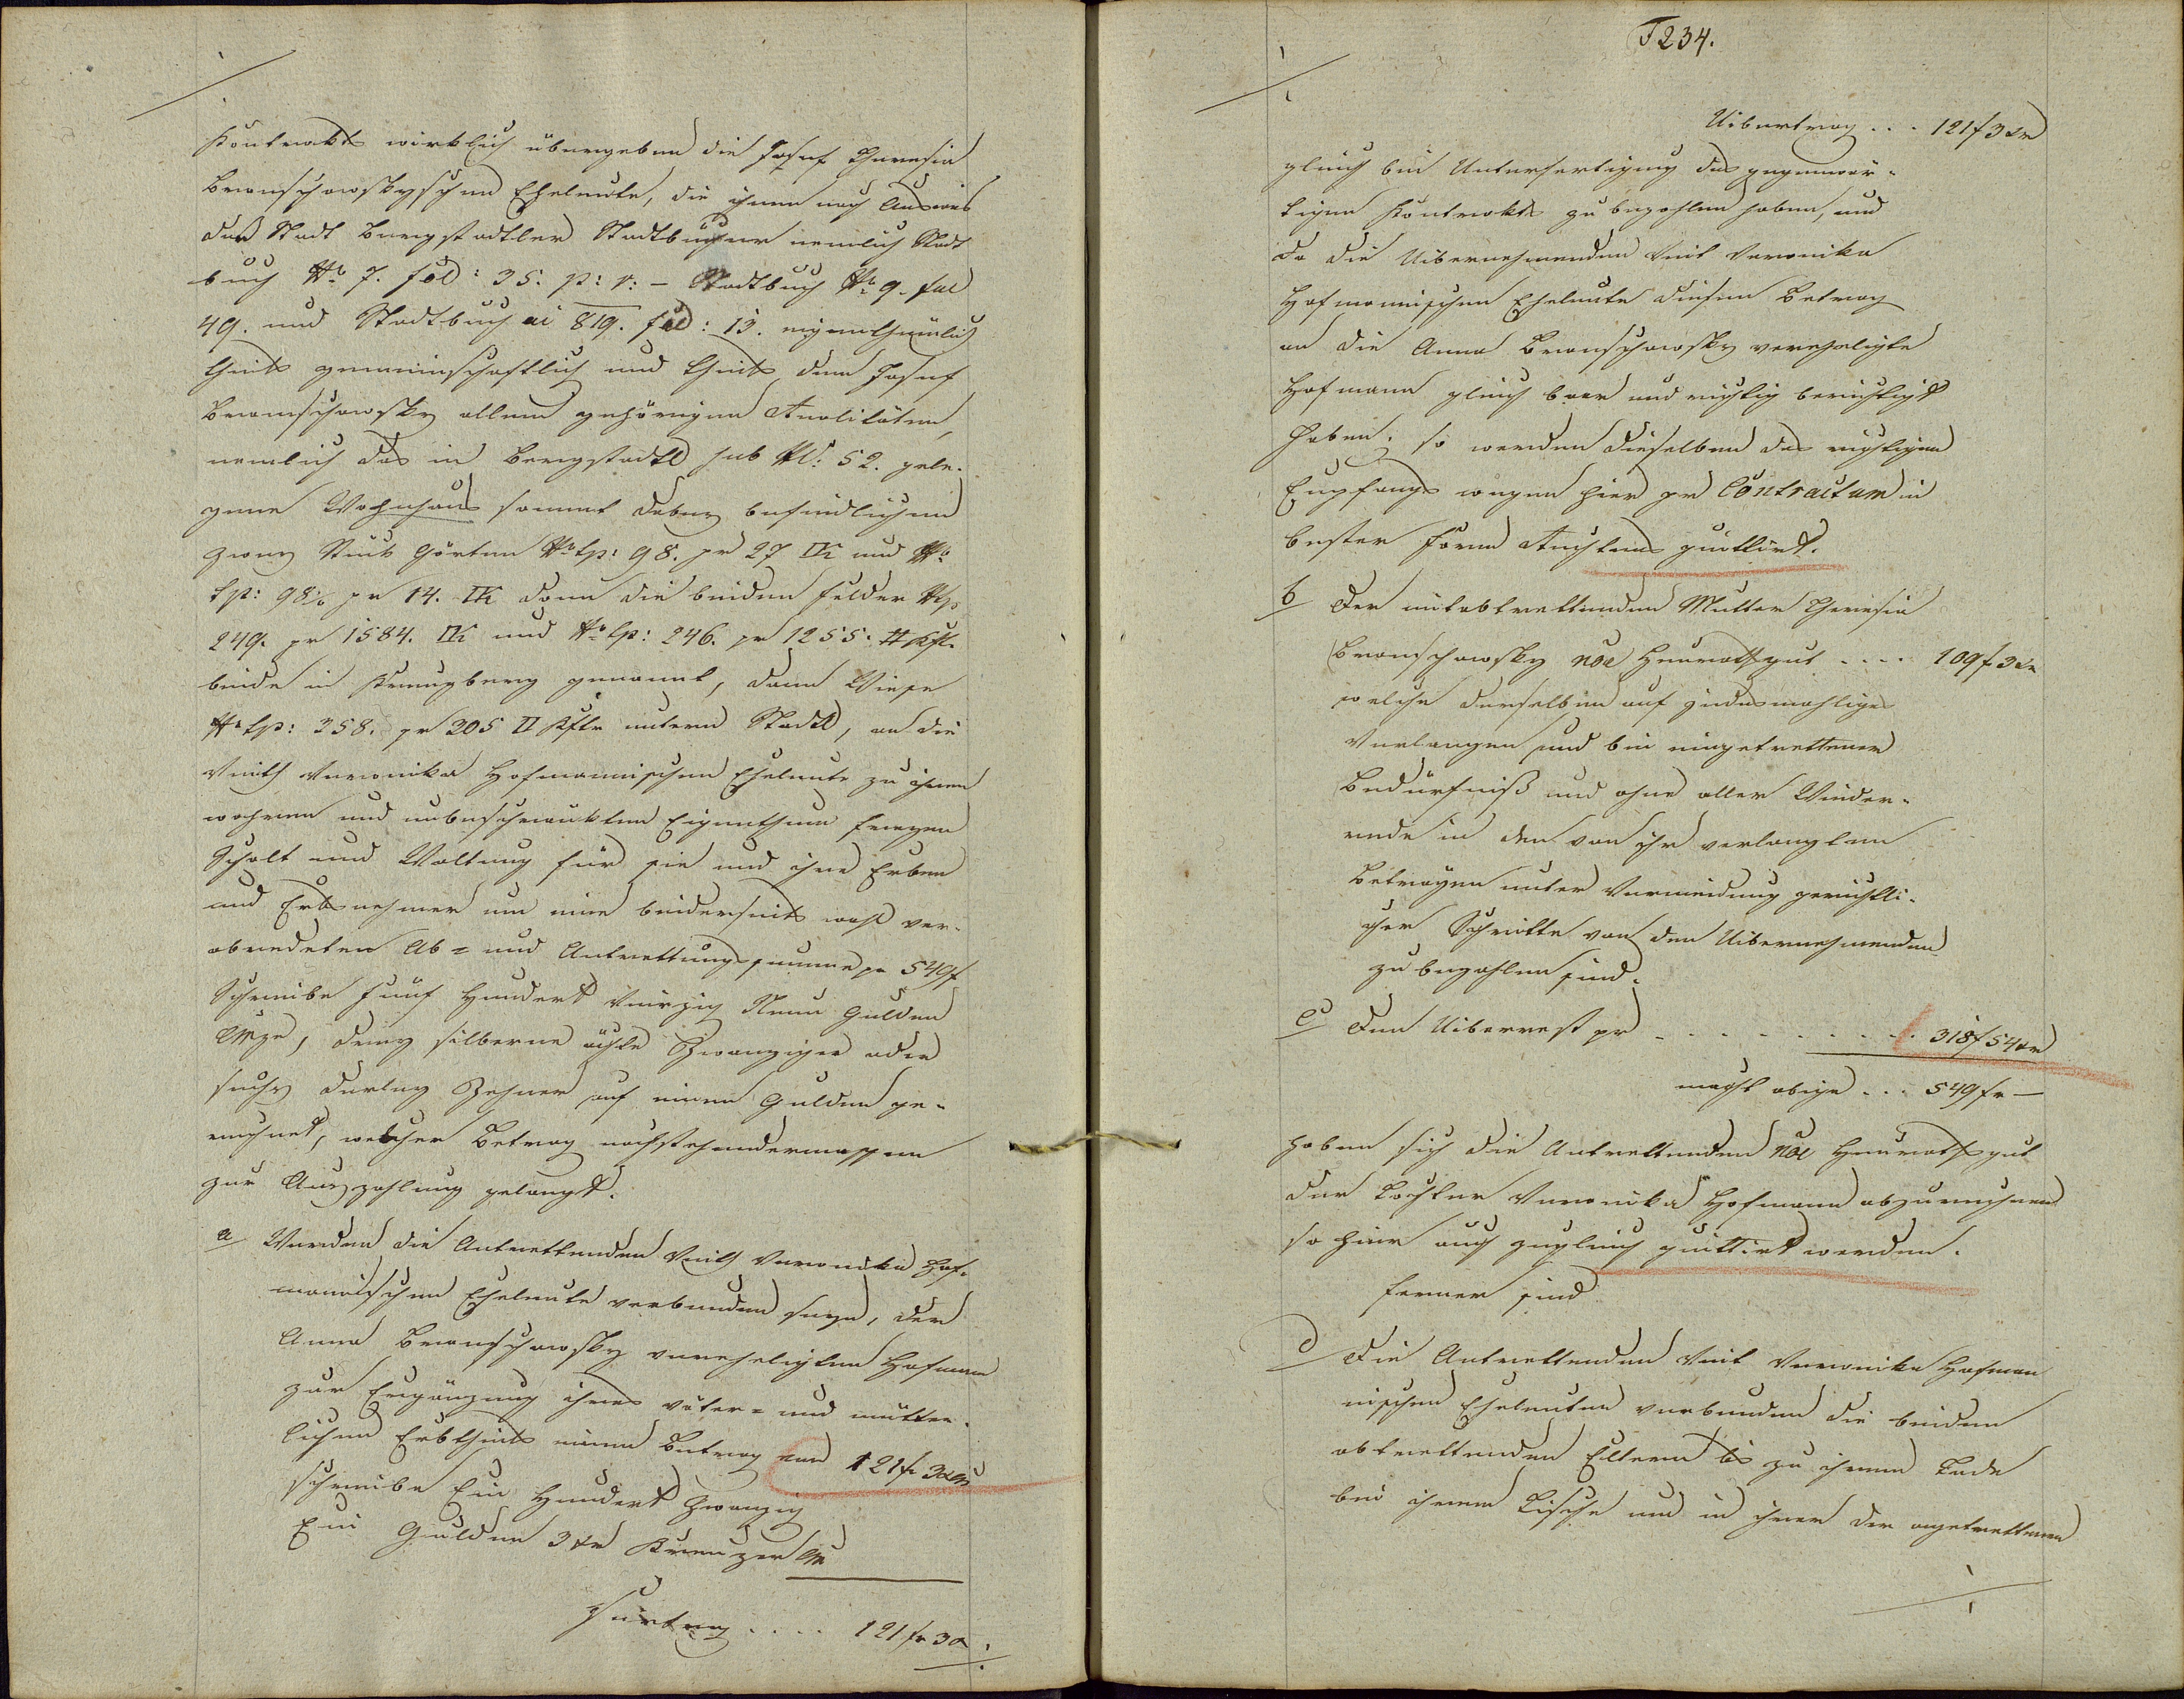 Kontrakts wirklich übergeben die Josef Theresia
Branschowskyschen Eheleute, die ihnen nach Ausweis
der Stadt Bergstadtler Stadtbücher nemlich Stadt
buch No 7. fol: 35. p: v: – Stadtbuch No 9. fol
49. und Stadtbuch ai 819. fol: 13. eigenthümlich
theils gemeinschaftlich und theils dem Josef
Branschowsky allein gehörigen Realitäten,
nemlich das in Bergstadtl sub No: 52. gele-
gene Wohnhaus sammt dabey befindlichen
zwey Stück Gärten No tp: 98. pr 27 □Kl und No
tp: 98½ pr 14. □Kl dann die beiden Felder No tp
249. pr 1584. □Kl und No tp: 246. pr 1255. □Kftl.
beide in Kreuzberg genannt, dann Wiese
No tp: 358. pr 205 □ Kftr unterm Stadtl, an die
Veith Veronika Hofmannischen Eheleute zu ihrem
wahren und unbeschränkten Eigenthum freyen
Schalt und Waltung für sie und ihre Erben
und Erbsnehmer um eine beiderseits wohl ver-
abredeten Ab- und Antrettungssumme pr 549 f
Schreibe Fünf Hundert Vierzig Neun Gulden
CMze, drey silberne ächte Zwanziger oder
sechs derley Zehner auf einen Gulden ge-
rechnet, welcher Betrag nachstehendermassen
zur Auszahlung gelangt.
a Werden die Antrettenden Veith Veronika Hof-
mannischen Eheleute verbunden seyn, der
Anna Branschowsky vereheligten Hofmann
zur Ergänzung ihres väter- und mütter-
lichen Erbtheils einen Betrag von 121 fr 3 xr
schreibe Ein Hundert Zwanzig
Ein Gulden 3 xr Kreuzer CM
Fürtrag .... 121 fr 3 x
T 234.
Uibertrag ... 121 f 3 xr
gleich bei Unterfertigung des gegenwär-
tigen Kontrakts zu bezahlen haben, und
da die Uibernehmenden Veit Veronika
Hofmannischen Eheleute diesen Betrag
an die Anna Branschowsky verehligte
Hofmann gleich baar und richtig berichtigt
haben, so werden dieselben des richtigen
Empfangs wegen hier pr Contractum in
bester Form Rechtens quittirt.
b Der mitabtrettenden Mutter Theresia
Branschowsky noe Heurathsgut .... 109 f 3 xr
welche derselben auf jedesmahliges
Verlangen und bei eingetrettener
Bedürfniß und ohne aller Wieder-
rede in den von ihr verlangten
Beträgen unter Vermeidung gerichtli-
cher Schritte von den Uibernehmenden
zu bezahlen sind.
c Den Uiberrest pr ........ 318 f 54 xr
macht obige ... 549 fr –
haben sich die Antrettenden noe Heurathsgut
der Tochter Veronika Hofmann abzurechnen
so hier auch zugleich quittirt werden.
Ferner sind
d Die Antrettenden Veit Veronika Hofman
nischen Eheleuten verbunden die beiden
abtrettenden Eltern bis zu ihrem Tode
bei ihrem Tische und in ihrer der angetrettenen